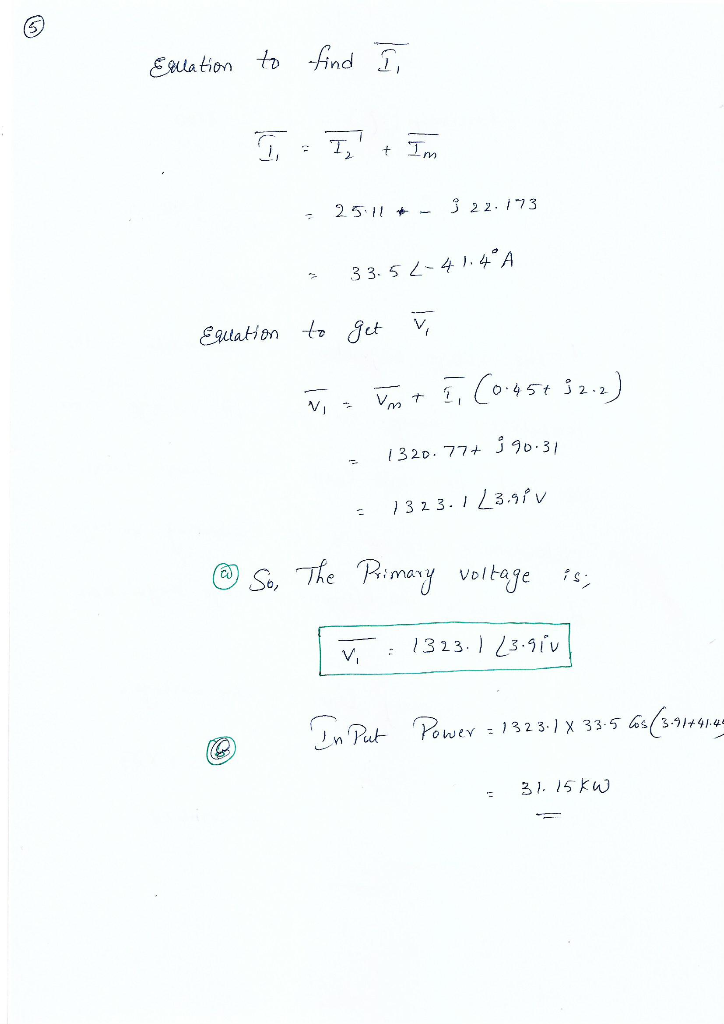 5
Equation to find I̅₁
I̅₁ = I̅₂' + I̅m
= 25.11 + - j 22.173
= 33.5 ∠-41.4° A
Equation to get V̅₁
V̅₁ = V̅m + I̅₁ (0.45+ j2.2)
= 1320.77+ j90.31
= 1323.1 ∠3.91° V
a So, The Primary voltage is;
V̅₁ = 1323.1 ∠3.91° V
InPut Power = 1323.1 X 33.5 Cos(3.91+41.4
= 31.15 KW